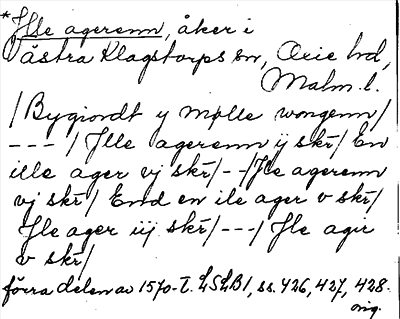 *Jlle agerenn, åker i
Västra Klagstorps sn, Oxie hd,
Malm. l.
/Bygiondt y Mølle wongenn/
--- / Jlle agerenn ij skr̄/ En
ille ager vj skr̄/--/Jle agerenn
vj skr̄/ End en ile ager v skr̄/
Jle ager iij skr̄/---/ Jle agir
v skr̄/
förra delen av 1570-t. LSLB1, ss. 426, 427, 428.
orig.